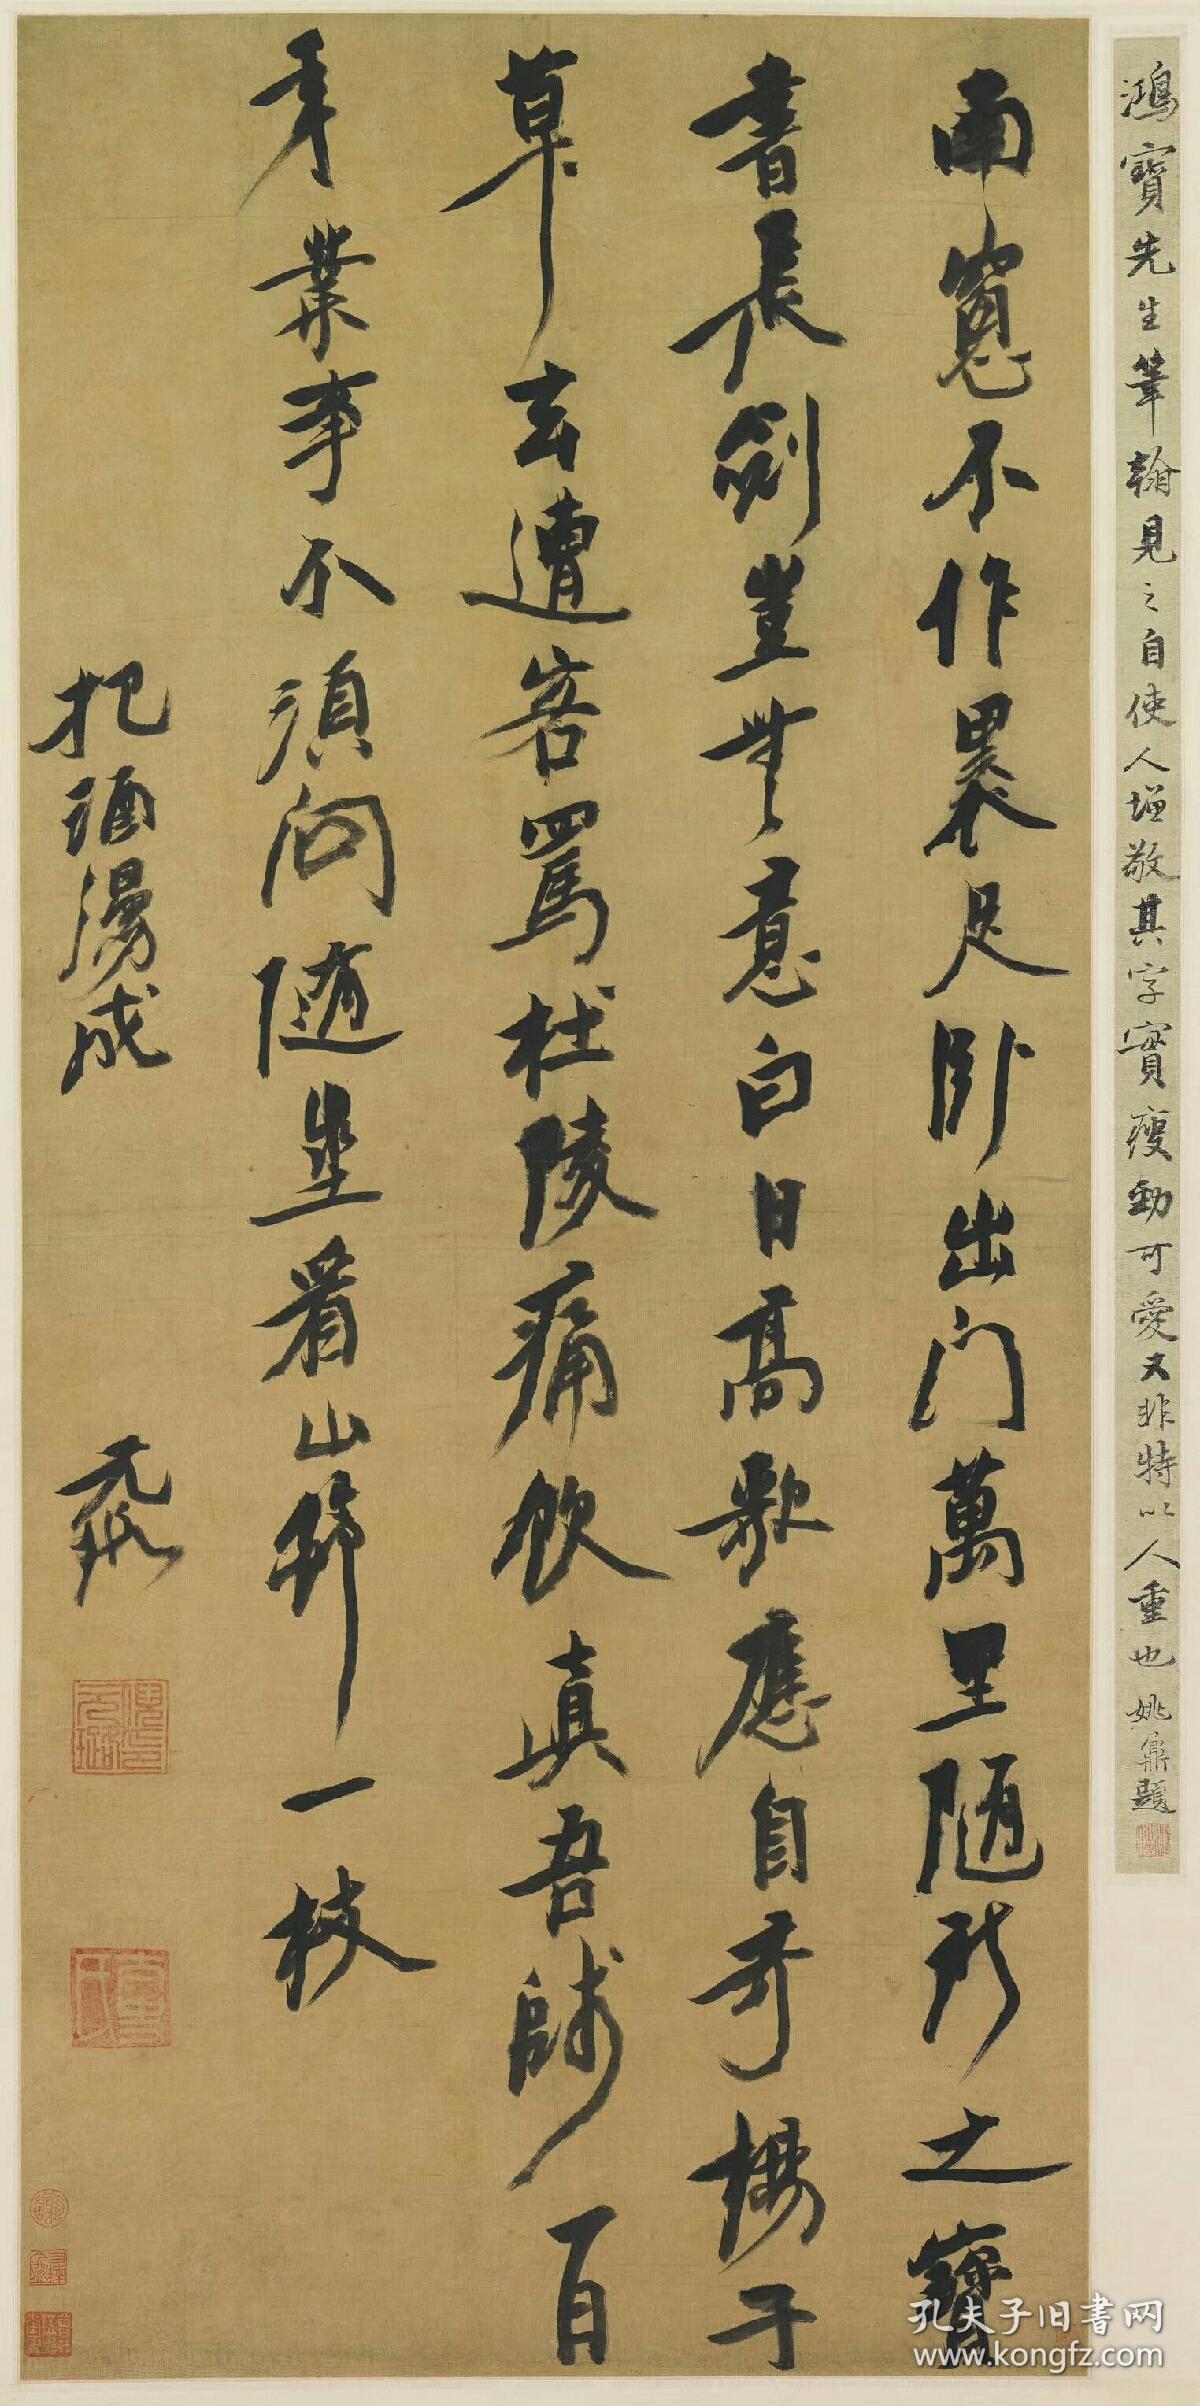 鴻寶先生筆翰見之自使人增敬其字實瘦勁可愛又非特以人重也 姚鼐題
南窻不作裹足卧出门萬里随所之寶
書長劍豈無意白日高歌應自奇揚子
草玄遭客罵杜陵痛飲真吾師百
年業事不須问随坐看山筇一枝
把酒漫成
元璐
孔夫子旧书网
www.kongfz.com